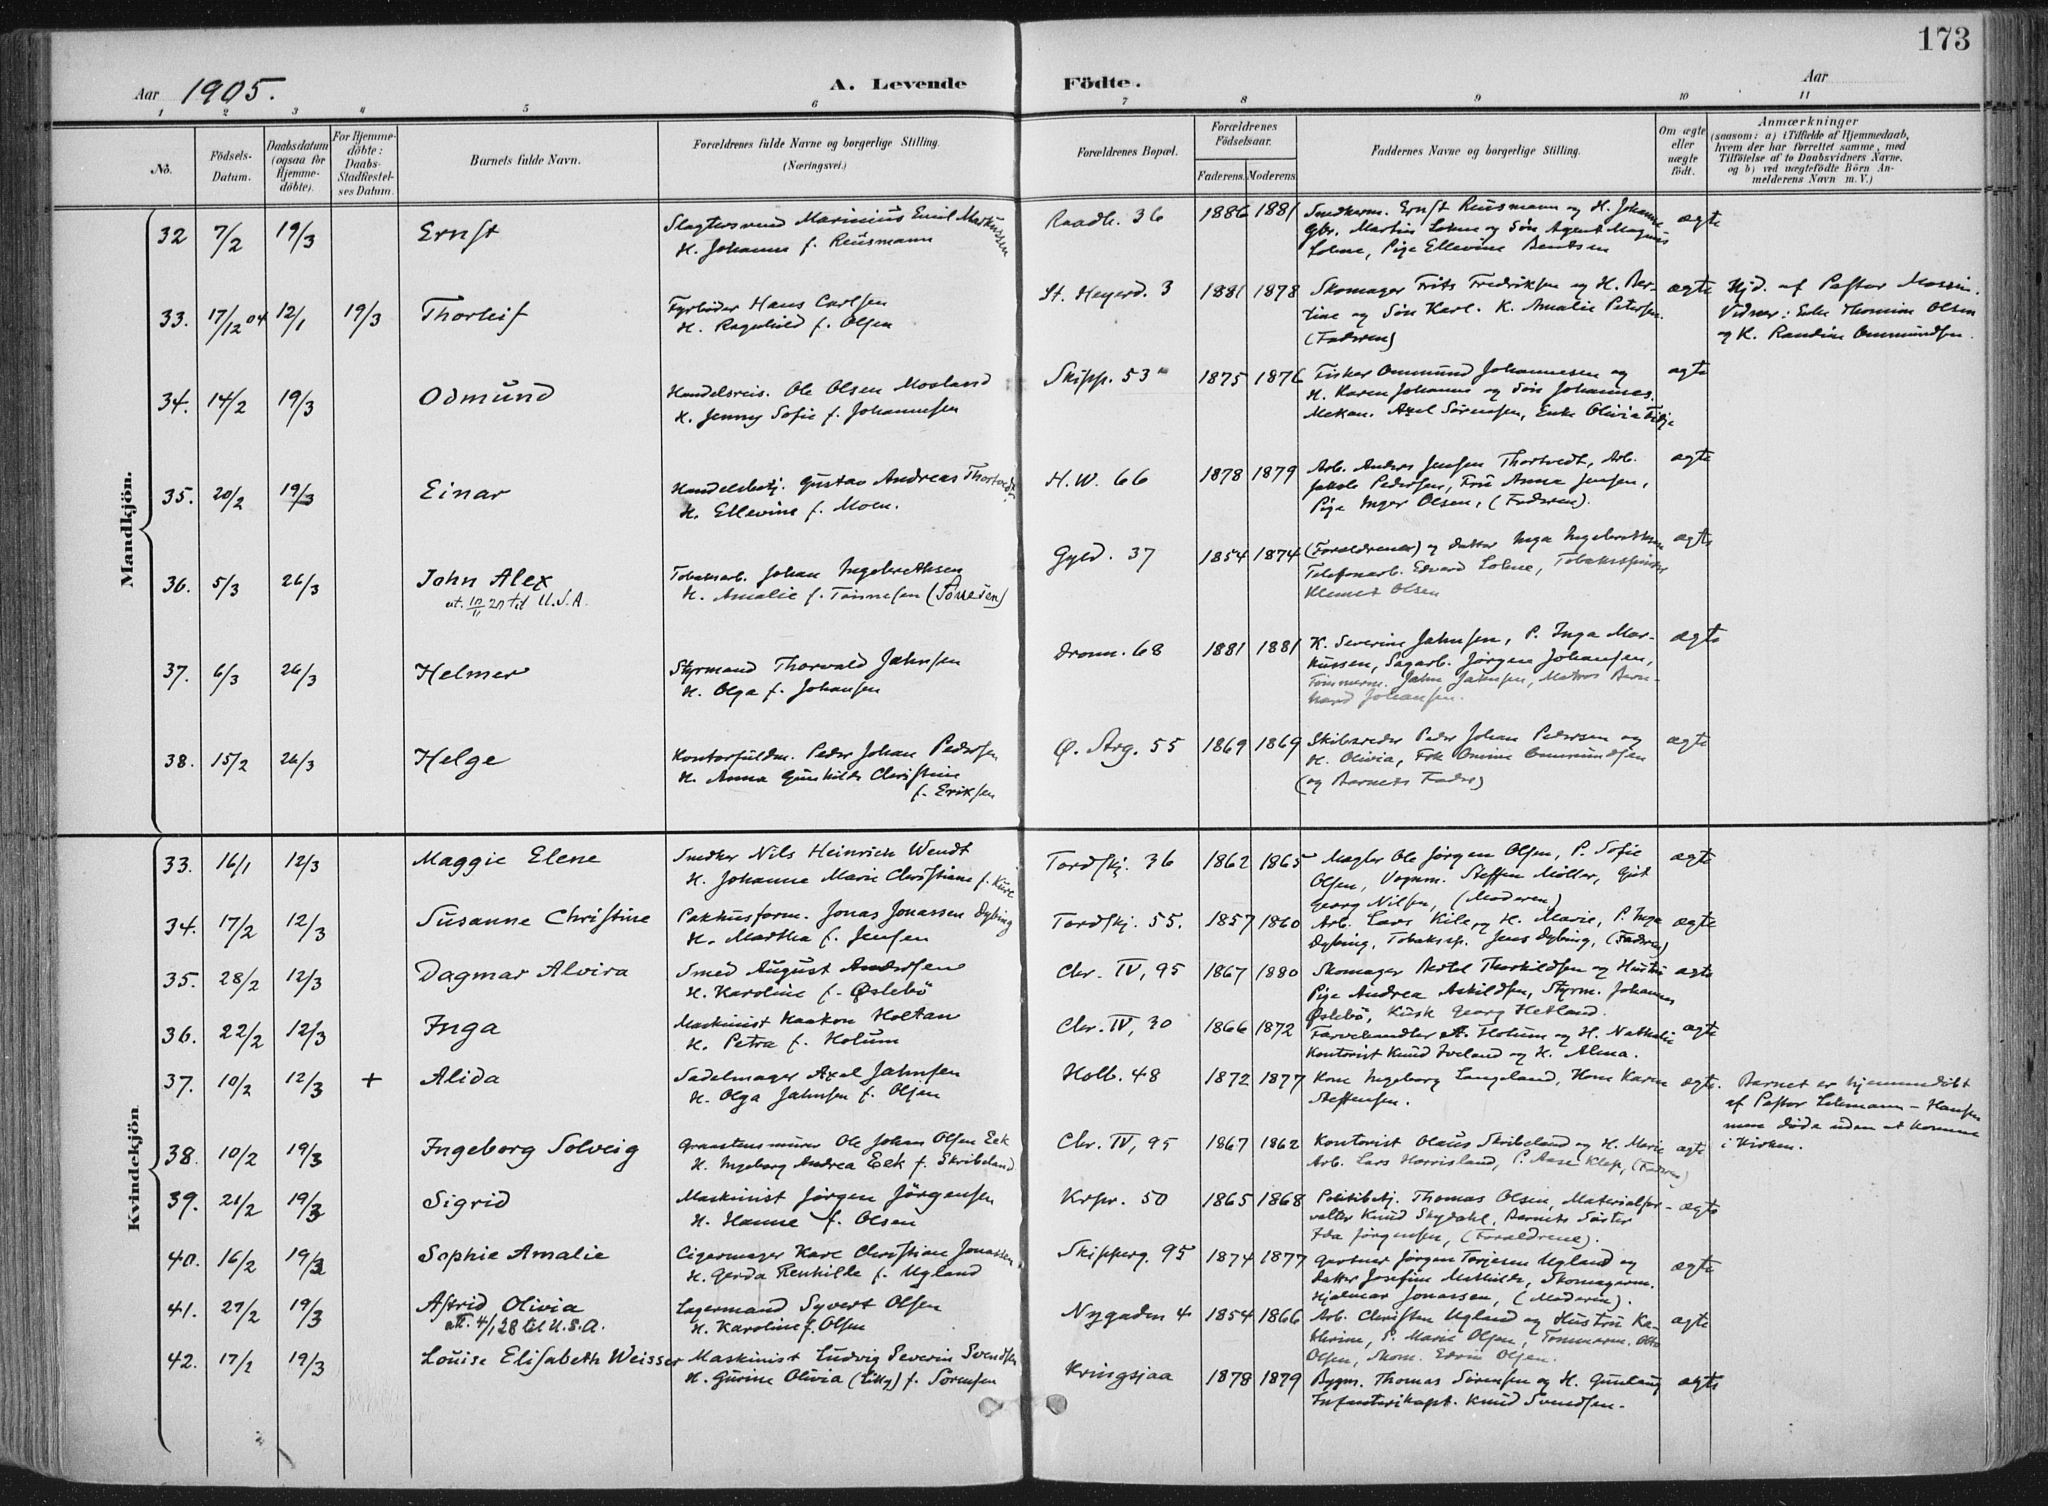 173
Aar 1905. A. Levende Födte. Aar
1 2 3 4 5 6 7 8 9 10 11
No.
Födsels-Datum.
Daabsdatum (ogsaa for Hjemme-döbte).
For Hjemme-döbte: Daabs-Stadfæstel-ses Datum.
Barnets fulde Navn.
Forældrenes fulde Navne og borgerlige Stilling.
(Næringsvei.)
Forældrenes Bopæl.
Forældrenes Födselsaar.
Faderens. Moderens.
Faddernes Navne og borgerlige Stilling.
Om ægte eller uægte födt.
Anmærkninger
(saasom: a) i Tilfælde af Hjemmedaab,
hvem der har forrettet samme, med
Tilföielse af to Daabsvidners Navne,
og b) ved uægtefödte Börn An-
melderens Navn m. V.)
Mandkjön.
32 7/2 19/3 Ernst Slagtersvend Marinius Emil Markussen Raadh. 36 1886 1881 Smedkerm. Ernst Reusmann og H. Johanne ægte
H. Johanne f. Reusmann Gbr. Martin Lohne og Søn Agent Magnus
Lohne, Pige Ellevine Bentsen
33. 17/12 04 12/1 19/3 Thorleif Fyrbøder Hans Carlsen St. Heyerd. 3 1881 1878 Skomager Frits Fredriksen og H. Ber- ægte Hjd. af Pastor
H. Ragnhild f. Olsen tine og Søn Karl. K. Amalie Petersen. Vidner: Enke Thomine Olsen
(Faderen) og K. Randine Ommundsen.
34. 14/2 19/3 Odmund Handelsreis. Ole Olsen Mosland Skipp. 53 1875 1876 Fisker Ommund Johannesen og ægte
H. Jenny Sofie f. Johannesen H. Karen Johanne og Søn Johannes.
Mekan. Axel Sørensen, Enke Olivia
35. 20/2 19/3 Einar Handelsbetj. Gustav Andreas Thortvedt H. W. 66 1878 1879 Arb. Anders Jensen Thortvedt, Arb. ægte
H. Ellevine f. Moen. Jakob Pedersen, Fru Anna Jensen,
Pige Inger Olsen, (Faderen).
36. 5/3 26/3 John Alex Tobaksarb. Johan Ingebrethsen Gyld. 37 1854 1874 (Forældrene) og datter Inga Ingebrethsen ægte
at. 10/11 27 til U.S.A. H. Amalie f. Tønnesen Telefonarb. Edvard Lohne, Tobaksspinder
Klemet Olsen
37. 6/3 26/3 Helmer Styrmand Thorvald Jahnsen Dronn. 68 1881 1881 K. Severine Jahnsen, P. Inga Mar- ægte
H. Olga f. Johansen kussen, Sagarb. Jørgen Johansen,
Tømmerm. Jahn Jahnsen, Matros Bern-
hard Johansen.
38. 15/2 26/3 Helge Kontorfuldm. Peder Johan Pedersen Ø. Strg. 55 1869 1869 Skibsreder Peder Johan Pedersen og ægte
H. Anna Gunhilde Christine H. Olivia, Frk Omine Ommundsen
f. Eriksen (og Barnets Fader)
Kvindekjön
33. 16/1 12/3 Maggie Elene Snedker Nils Heinrich Wendt Tordskj. 36 1862 1865 Mægler Ole Jørgen Olsen, P. Sofie ægte
H. Johanne Marie Christiane f. Olsen, Vognm. Steffen Møller, Gut
Georg Nilsen, (Moderen)
34. 17/2 12/3 Susanne Christine Pakhusform. Jonas Jonassen Dybing Tordskj. 55. 1857 1860 Arb. Lars Kile og H. Marie, P. Inga ægte
H. Martha f. Jensen Dybing, Tobakssp. Jens Dybing, (Faderen)
35. 28/2 12/3 Dagmar Alvira Smed August Andersen Chr. IV, 95 1867 1880 Skomager Bertel Thorkildsen og Hustru ægte
H. Karoline f. Øslebö Pige Andrea Askildsen, Styrm. Johannes
Øslebö, Kusk Georg Hetland.
36. 22/2 12/3 Inga Maskinist Haakon Holtan Chr. IV, 30 1866 1872 Farvehandler A. Holum og H. Nathalie ægte
H. Petra f. Holum Kontorist Knud Iveland og H. Alma.
37. 10/2 12/3 + Alida Sadelmager Axel Jahnsen Holb. 48 1872 1877 Kone Ingeborg Langeland, Kone Karen ægte. Barnet er hjemmedøbt
H. Olga Jahnsen f. Olsen Steffensen. af Pastor Lehmann-Hansen
men døde uden at komme
i Kirken.
38. 10/2 19/3 Ingeborg Solveig Graastensmurer Ole Johan Olsen Eek Chr. IV, 95 1867 1862 Kontorist Olaus Skribeland og H. Marie ægte
H. Ingeborg Andrea Eek f. Skribeland Arb. Lars Horrisland, P. Aase Klep, (Faderen)
39. 21/2 19/3 Sigrid Maskinist Jørgen Jörgensen Krpr. 50 1865 1868 Politibetj. Thomas Olsen, Materialfor- ægte
H. Hanne f. Olsen valter Knud Skydahl, Barnets Søster
Ida Jørgensen, (Forældrene).
40. 16/2 19/3 Sophie Amalie Cigarmager Karl Christian Jonassen Skipperg. 95 1874 1877 Gartner Jörgen Terjesen Ugland og ægte
H. Gerda Renhilde f. Ugland Datter Josefine Mathilde, Skomagerm.
Hjalmar Jonassen, (Moderen).
41. 27/2 19/3 Astrid Olivia Lagermand Syvert Olsen Nygaden 4 1854 1866 Arb. Christen Ugland og Hustru Ka- ægte
att. 4/1 28 til U.S.A. H. Karoline f. Olsen thrine, P. Marie Olsen, Tømmerm. Otto
Olsen, Skom. Edvin Olsen.
42. 17/2 19/3 Louise Elisabeth Weisser Maskinist Ludvig Severin Svendsen Kringsjaa 1878 1879 Bygm. Thomas Sörensen og H. Gunlaug ægte
H. Gurine Olivia (Lilly) f. Sörensen Infanterikapt. Knud Svendsen.